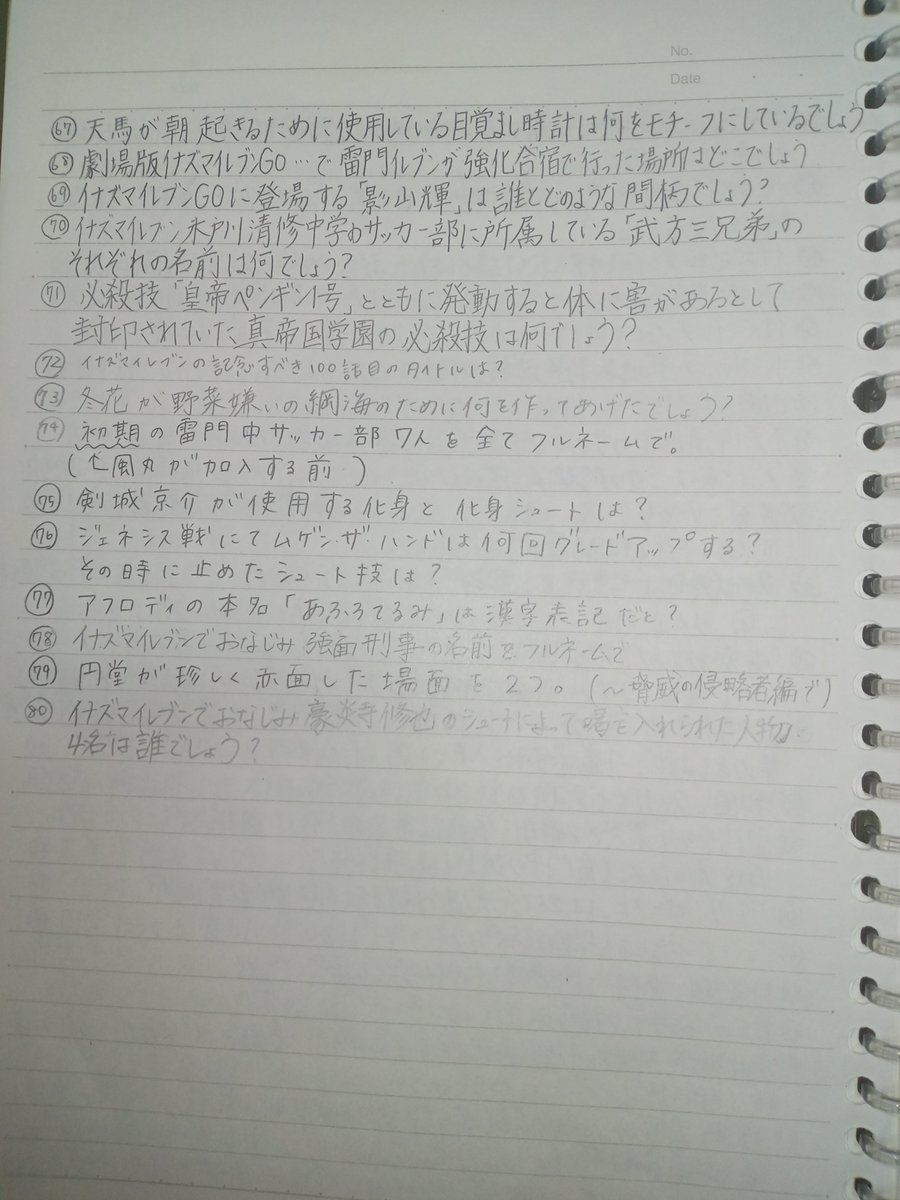 No.
Date
67 天馬が朝起きるために使用している目覚まし時計は何をモチーフにしているでしょう
68 劇場版イナズマイレブンGO…で雷門イレブンが強化合宿で行った場所はどこでしょう
69 イナズマイレブンGOに登場する「影山輝」は誰とどのような間柄でしょう?
70 イナズマイレブン木戸川清修中学のサッカー部に所属している「武方三兄弟」の
それぞれの名前は何でしょう?
71 必殺技「皇帝ペンギン1号」とともに発動すると体に害があるとして
封印されていた真帝国学園の必殺技は何でしょう?
72 イナズマイレブンの記念すべき100話目のタイトルは?
73 冬花が野菜嫌いの綱海のために何を作ってあげたでしょう?
74 初期の雷門中サッカー部7人を全てフルネームで。
(↑風丸が加入する前)
75 剣城京介が使用する化身と化身シュートは?
76 ジェネシス戦にてムゲン・ザ・ハンドは何回グレードアップする?
その時に止めたシュート技は?
77 アフロディの本名「あふろてるみ」は漢字表記だと?
78 イナズマイレブンでおなじみ強面刑事の名前をフルネームで
79 円堂が珍しく赤面した場面を2つ。(~脅威の侵略者編で)
80 イナズマイレブンでおなじみ豪炎寺修也のシュートによって喝を入れられた人物
4名は誰でしょう?